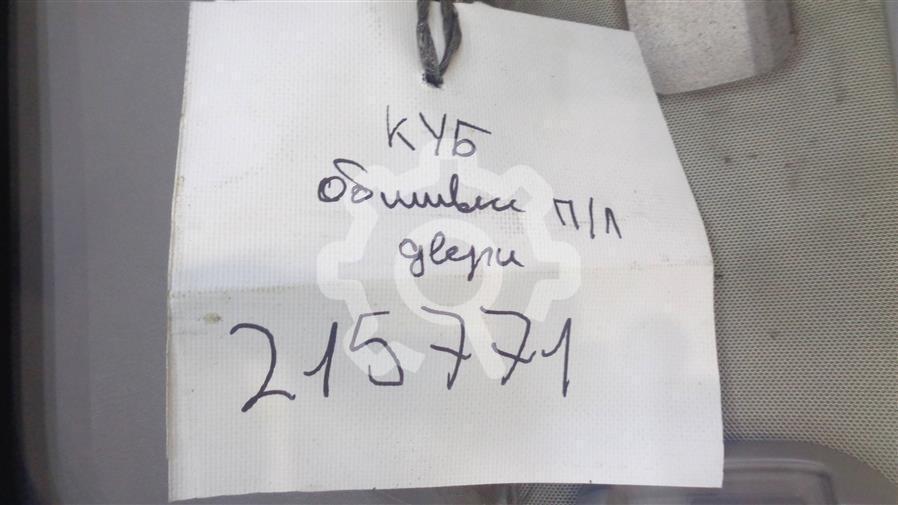 КУБ
обшивки п/л
двери
215771